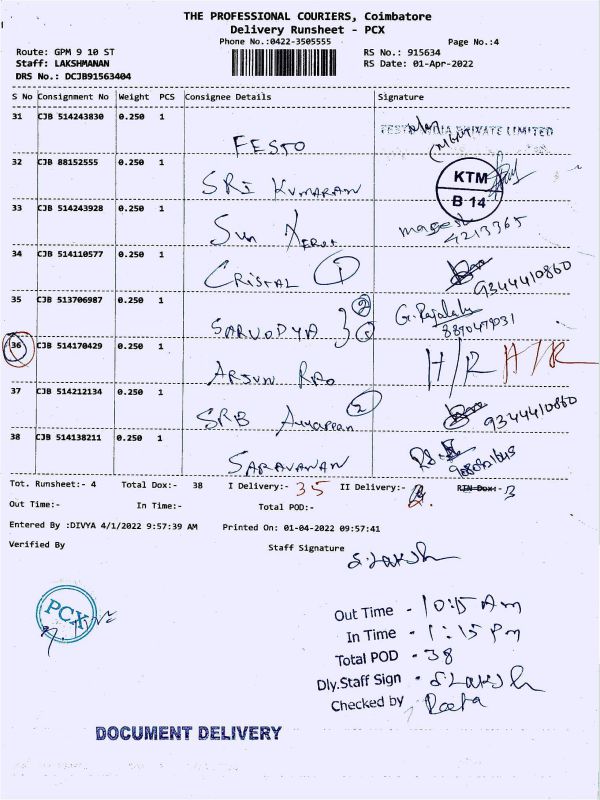 THE PROFESSIONAL COURIERS, Coimbatore
Delivery Runsheet - PCX
Phone No.:0422-3505555 Page No.:4
Route: GPM 9 10 ST RS No.: 915634
Staff: LAKSHMANAN RS Date: 01-Apr-2022
DRS No.: DCJB91563404
S No Consignment No Weight PCS Consignee Details Signature
31 CJB 514243830 0.250 1 FESTO PRIVATE LIMITED
32 CJB 88152555 0.250 1 SRI KUMARAN KTM B 14
33 CJB 514243928 0.250 1 Sun Xerox magesh 4213365
34 CJB 514110577 0.250 1 CRISTAL 1 9344410860
35 CJB 513706987 0.250 1 SARVODYA 2 G. Rajalaks
36 CJB 514170429 0.250 1 ARJUN RAO H/R H/R
37 CJB 514212134 0.250 1 SRB 2 9344410860
38 CJB 514138211 0.250 1 SARAVANAN
Tot. Runsheet:- 4 Total Dox:- 38 I Delivery:- 35 II Delivery:- RTN Dox:- 3
Out Time:- In Time:- Total POD:-
Entered By :DIVYA 4/1/2022 9:57:39 AM Printed On: 01-04-2022 09:57:41
Verified By Staff Signature S. Laksh
PCX
Out Time - 10:15 Am
In Time - 1:15 Pm
Total POD - 38
Dly.Staff Sign - S. Laksh
Checked by Reeta
DOCUMENT DELIVERY